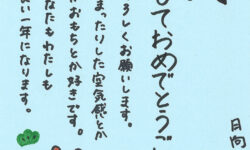 しておめでとうご
ろしくお願いします。
まったりした空気感とか
おもちとか好きです。
なたもわたしも
い一年になります。
日向